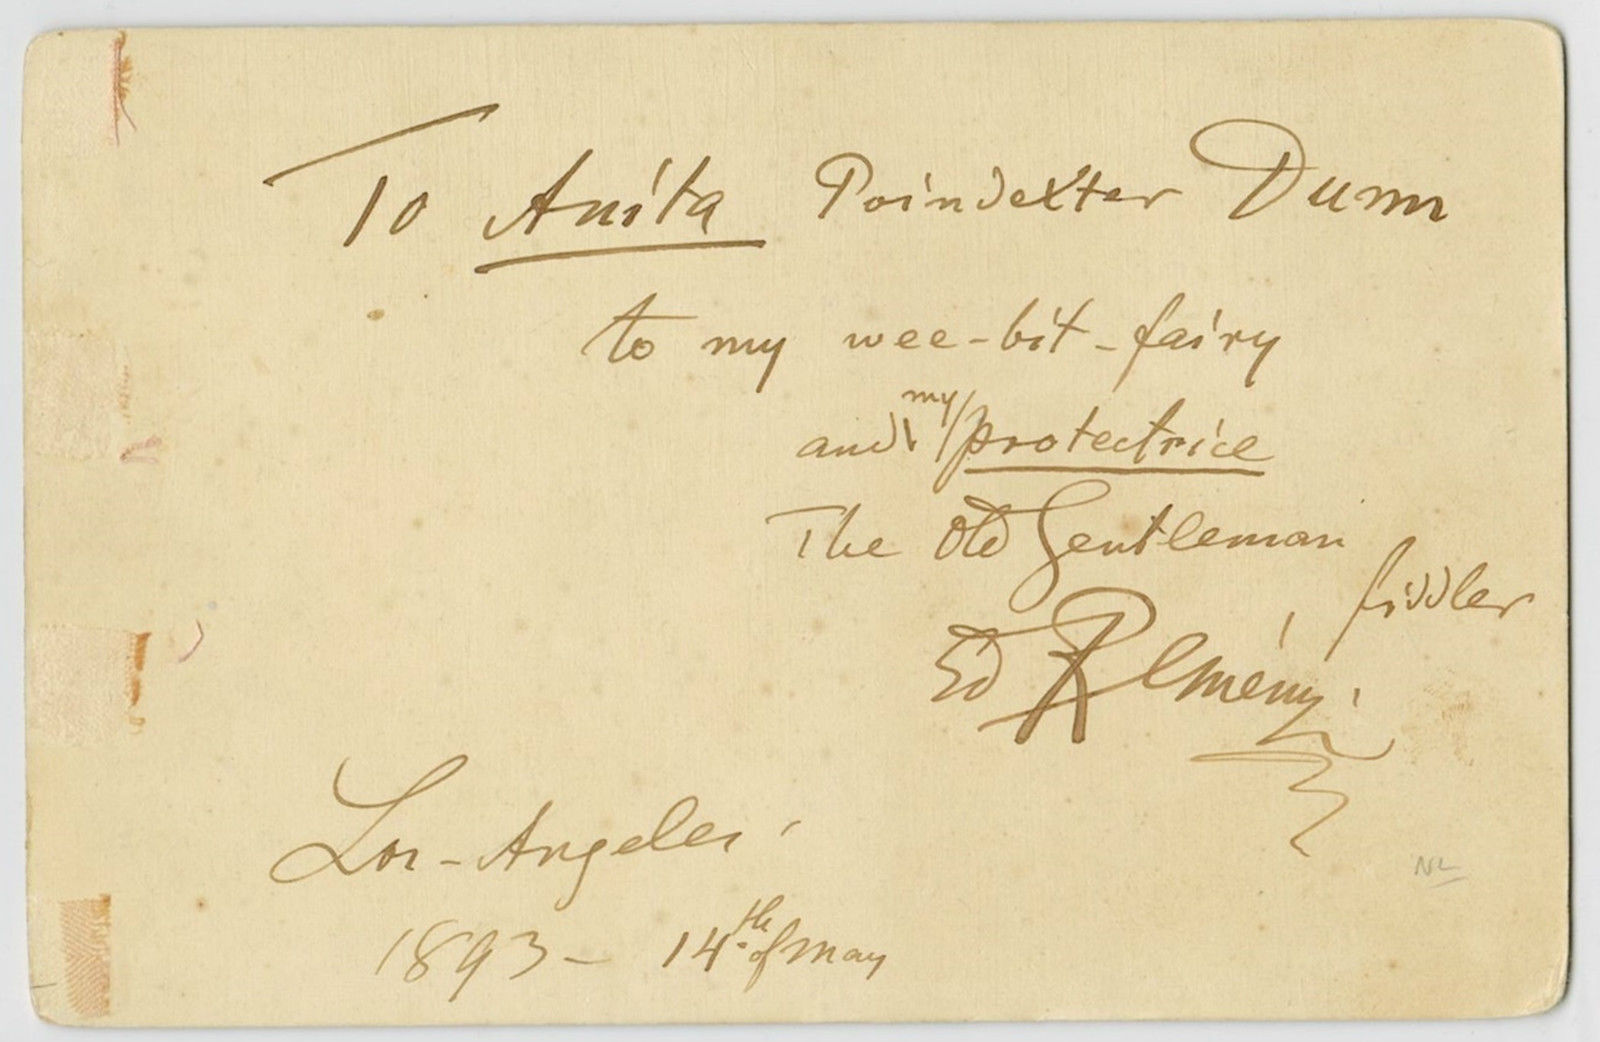 To Anita Poindexter Dunn
to my wee-bit-fairy
and my protectrice
The Old Gentleman
fiddler
Ed Reményi.
Los-Angeles.
1893 - 14th of May
NL